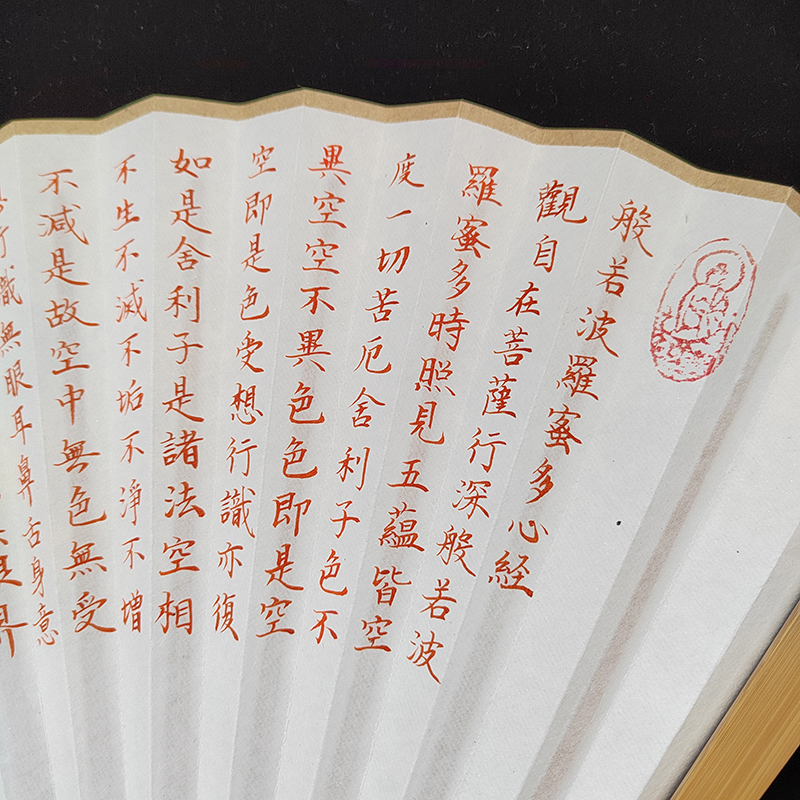 般若波羅蜜多心経
觀自在菩薩行深般若波
羅蜜多時照見五蘊皆空
度一切苦厄舍利子色不
異空空不異色色即是空
空即是色受想行識亦復
如是舍利子是諸法空相
不生不滅不垢不淨不增
不減是故空中無色無受
行識無眼耳鼻舌身意